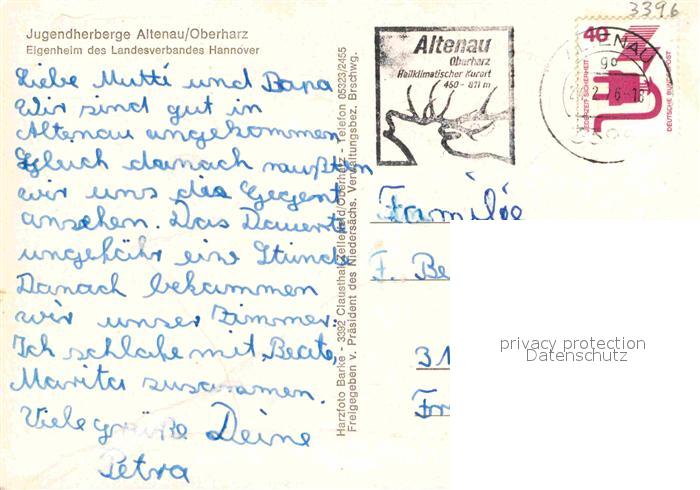 3396
Jugendherberge Altenau/Oberharz
Eigenheim des Landesverbandes Hannover
Liebe Mutti und Papa
Wir sind gut in
Altenau angekommen
Gleich danach mußten
wir uns die Gegent
ansehen. Das Dauerte
ungefähr eine Stunde
Danach bekammen
wir unser Zimmer.
Ich schlafe mit, Beate,
Marita zusammen.
Viele grüße Deine
Petra
Harzfoto Barke - 3392 Clausthal-Zellerfeld/Oberharz - Telefon 05323/2455
Freigegeben v. Präsident des Niedersächs. Verwaltungsbez. Brschwg.
Altenau
Oberharz
Heilklimatischer Kurort
450 - 811 m
ALTENAU
40
JEDERZEIT SICHERHEIT
DEUTSCHE BUNDESPOST
Familie
F. Be
31
privacy protection
Datenschutz